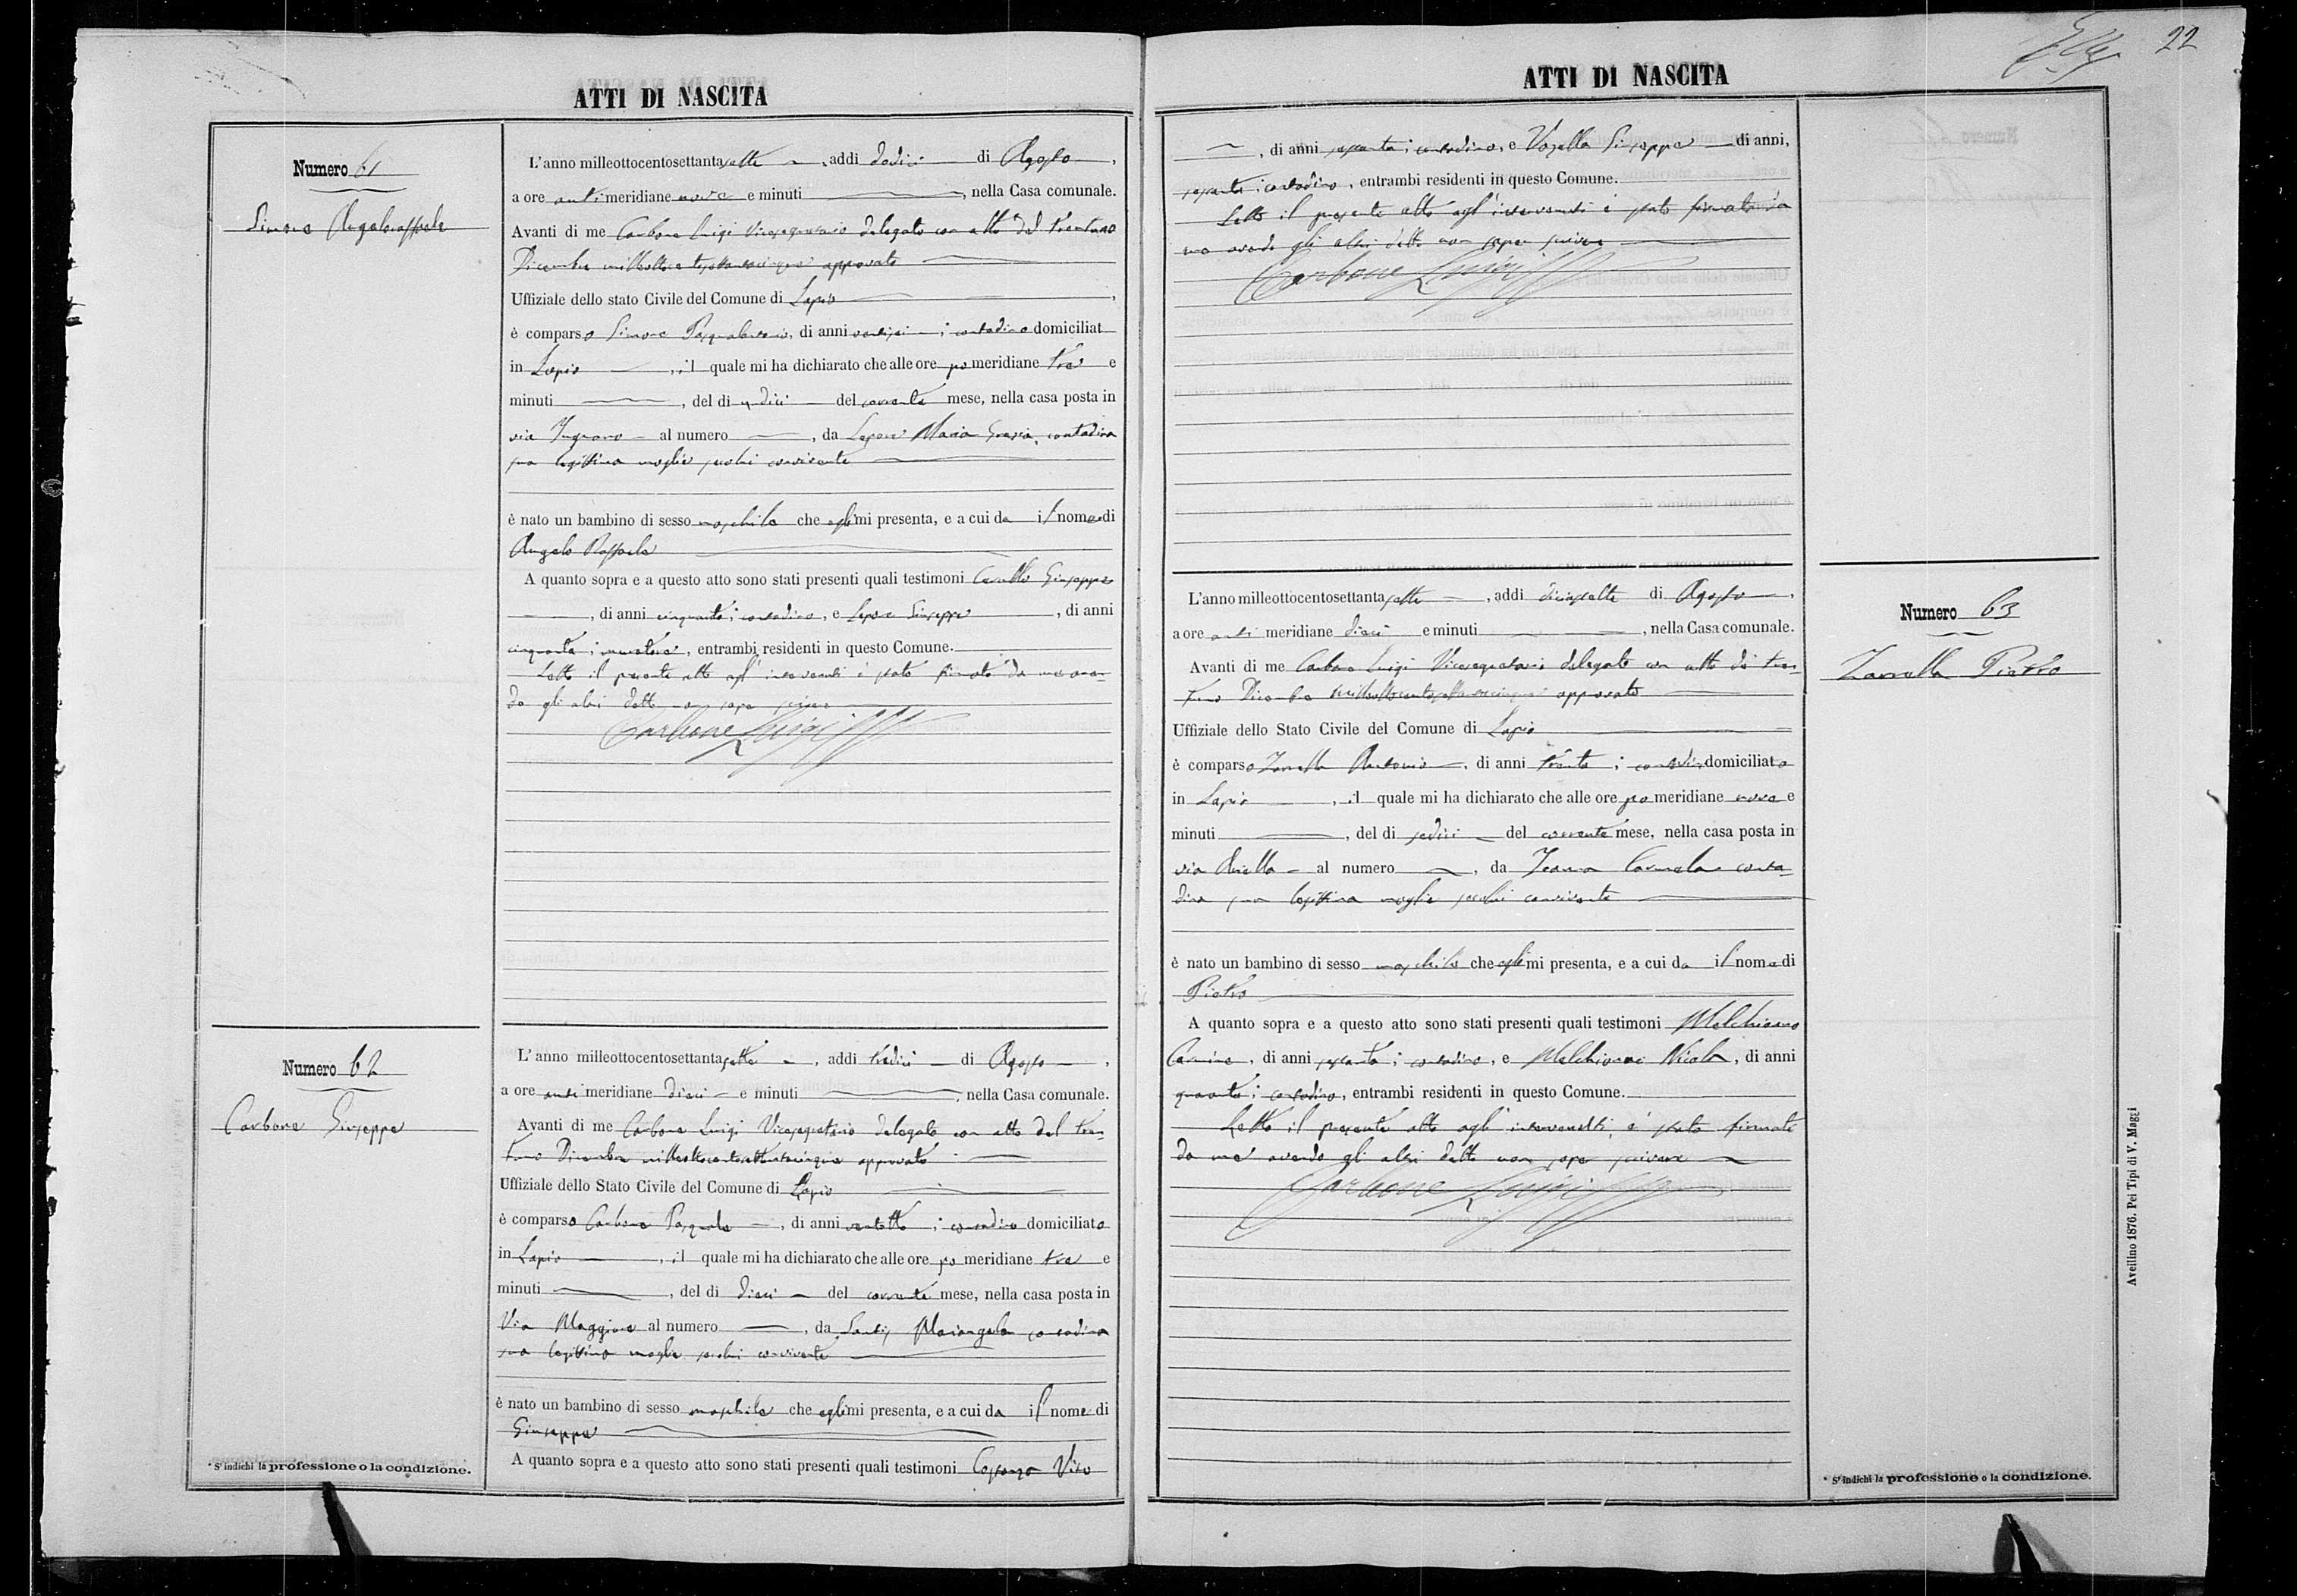 22
ATTI DI NASCITA
Numero 61
Simone Angeloraffaele
L'anno milleottocentosettantasette, addi dodici di Agosto,
a ore antimeridiane nove e minuti, nella Casa comunale.
Avanti di me Carbone Luigi Vicesegretario delegato con atto del trentuno
Dicembre milleottocentosettantacinque approvato
Uffiziale dello stato Civile del Comune di Lapio,
è comparso Simone, di anni ventisei; contadino domiciliat
in Lapio, il quale mi ha dichiarato che alle ore pomeridiane tre e
minuti, del dì undici del corrente mese, nella casa posta in
via al numero, da Lepore Maria Grazia, contadina
sua legittima moglie secolui convivente
è nato un bambino di sesso maschile che egli mi presenta, e a cui da il nome di
Angelo Raffaele
A quanto sopra e a questo atto sono stati presenti quali testimoni Giuseppe
, di anni cinquanta; contadino, e Lepore Giuseppe, di anni
cinquanta; muratore, entrambi residenti in questo Comune.
Letto il presente atto agl'intervenuti è stato firmato da me aven-
do gli altri detto non saper scrivere
Carbone Luigi
Numero 62
Carbone Giuseppe
L'anno milleottocentosettantasette, addi tredici di Agosto,
a ore antimeridiane dieci e minuti, nella Casa comunale.
Avanti di me Carbone Luigi Vicesegretario delegato con atto del tren-
tuno Dicembre milleottocentosettantacinque approvato
Uffiziale dello Stato Civile del Comune di Lapio
è comparso Carbone Pasquale, di anni ventotto; contadino domiciliato
in Lapio, il quale mi ha dichiarato che alle ore pomeridiane tre e
minuti, del dì dieci del corrente mese, nella casa posta in
Via Maggiore al numero, da Mariangela contadina
sua legittima moglie secolui convivente
è nato un bambino di sesso maschile che egli mi presenta, e a cui da il nome di
Giuseppe
A quanto sopra e a questo atto sono stati presenti quali testimoni Vito
* S'indichi la professione o la condizione.
ATTI DI NASCITA
, di anni sessanta; contadino, e Giuseppe di anni,
sessanta; contadino, entrambi residenti in questo Comune.
Letto il presente atto agl'intervenuti è stato firmato da
me avendo gli altri detto non saper scrivere
Carbone Luigi
Numero 63
Zarrella Pietro
L'anno milleottocentosettantasette, addi diciassette di Agosto,
a ore anti meridiane dieci e minuti, nella Casa comunale.
Avanti di me Carbone Luigi Vicesegretario delegato con atto di tren-
tuno Dicembre milleottocentosettantacinque approvato
Uffiziale dello Stato Civile del Comune di Lapio
è comparso Zarrella Antonio, di anni trenta; contadino domiciliato
in Lapio, il quale mi ha dichiarato che alle ore pomeridiane nove e
minuti, del dì sedici del corrente mese, nella casa posta in
via al numero, da Carmela conta-
dina sua legittima moglie secolui convivente
è nato un bambino di sesso maschile che egli mi presenta, e a cui da il nome di
Pietro
A quanto sopra e a questo atto sono stati presenti quali testimoni Melchionno
Carmine, di anni sessanta; contadino, e Melchionno Nicola, di anni
quaranta; contadino, entrambi residenti in questo Comune.
Letto il presente atto agl'intervenuti, è stato firmato
da me avendo gli altri detto non saper scrivere
Carbone Luigi
* S'indichi la professione o la condizione.
Avellino 1876. Pei Tipi di V. Maggi